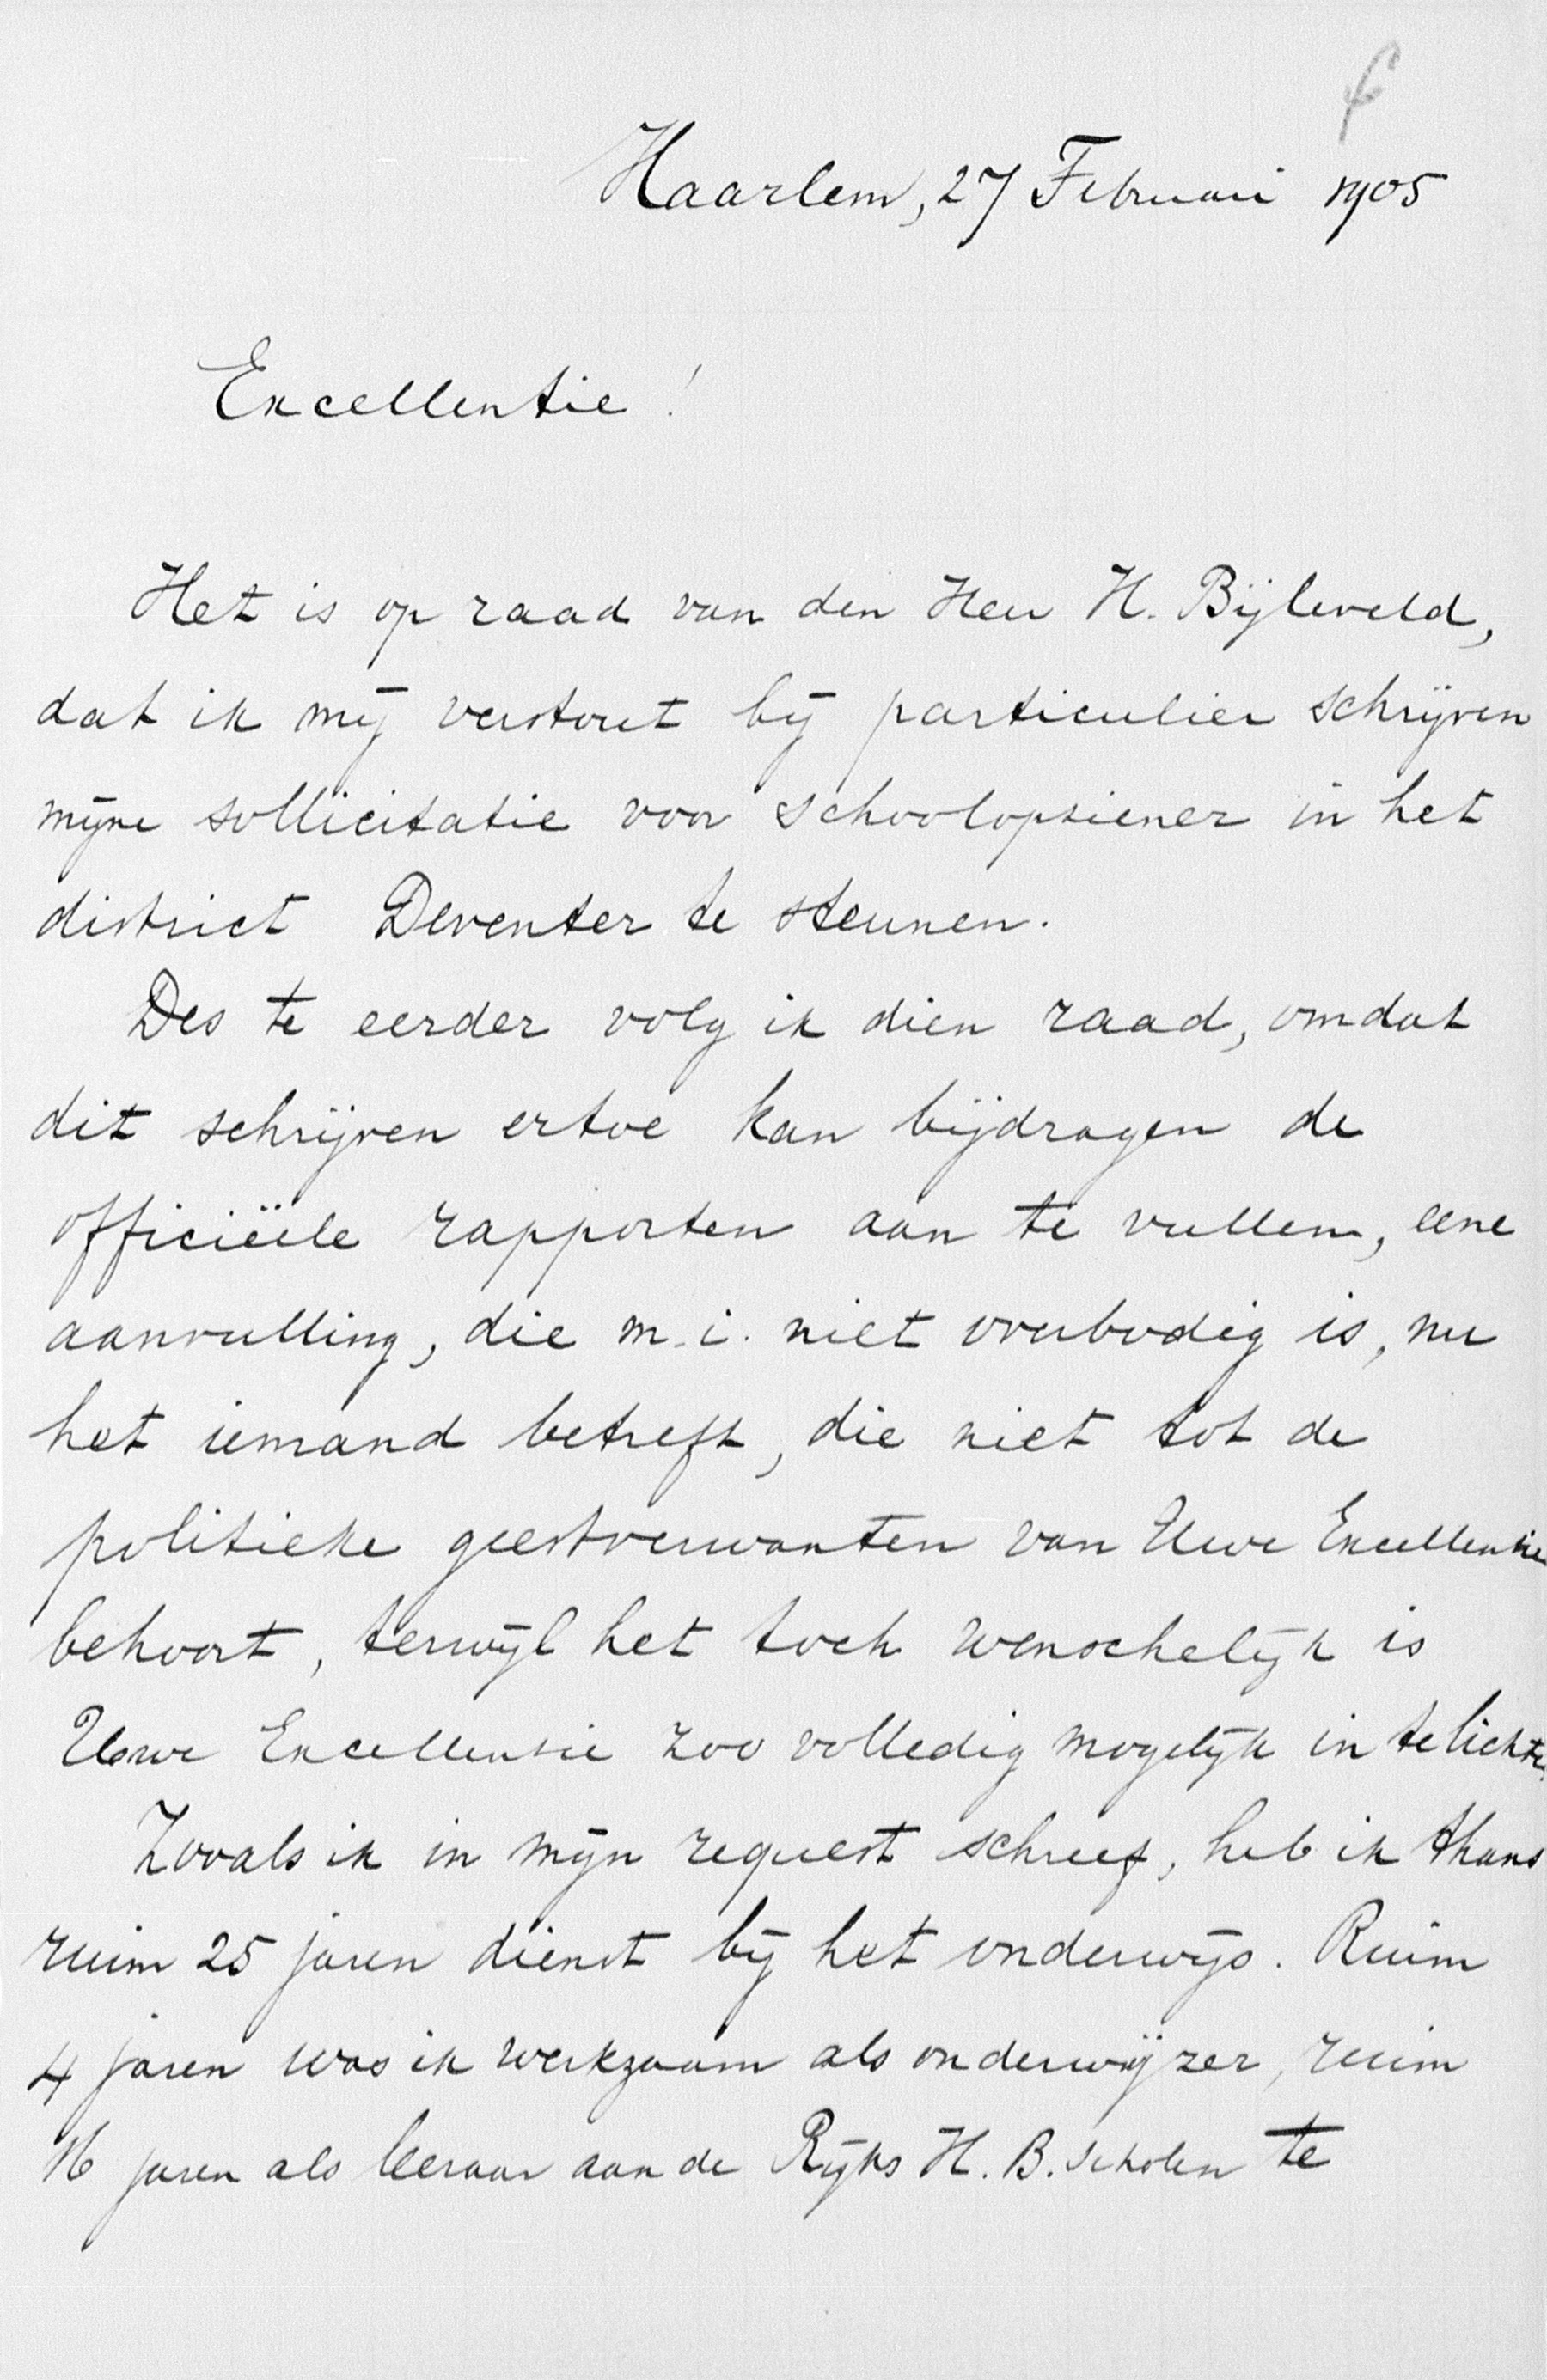 Haarlem, 27 Februari 1905
Excellentie!
Het is op raad van den Heer H. Bijleveld,
dat ik mij verstout bij particulier schrijven
mijne sollicitatie voor schoolopziener in het
district Deventer te steunen.
Des te eerder volg ik dien raad, omdat
dit schrijven ertoe kan bijdragen de
officiëele rapporten aan te vullen, eene
aanvulling, die m.i. niet overbodig is, nu
het iemand betreft, die niet tot de
politieke geestverwanten van Uwe Excellentie
behoort, terwijl het toch wenschelijk is
Uwe Excellentie zoo volledig mogelijk in te lichten.
Zooals ik in mijn request schreef, heb ik thans
ruim 25 jaren dienst bij het onderwijs. Ruim
4 jaren was ik werkzaam als onderwijzer, ruim
16 jaren als leeraar aan de Rijks H. B. Scholen te